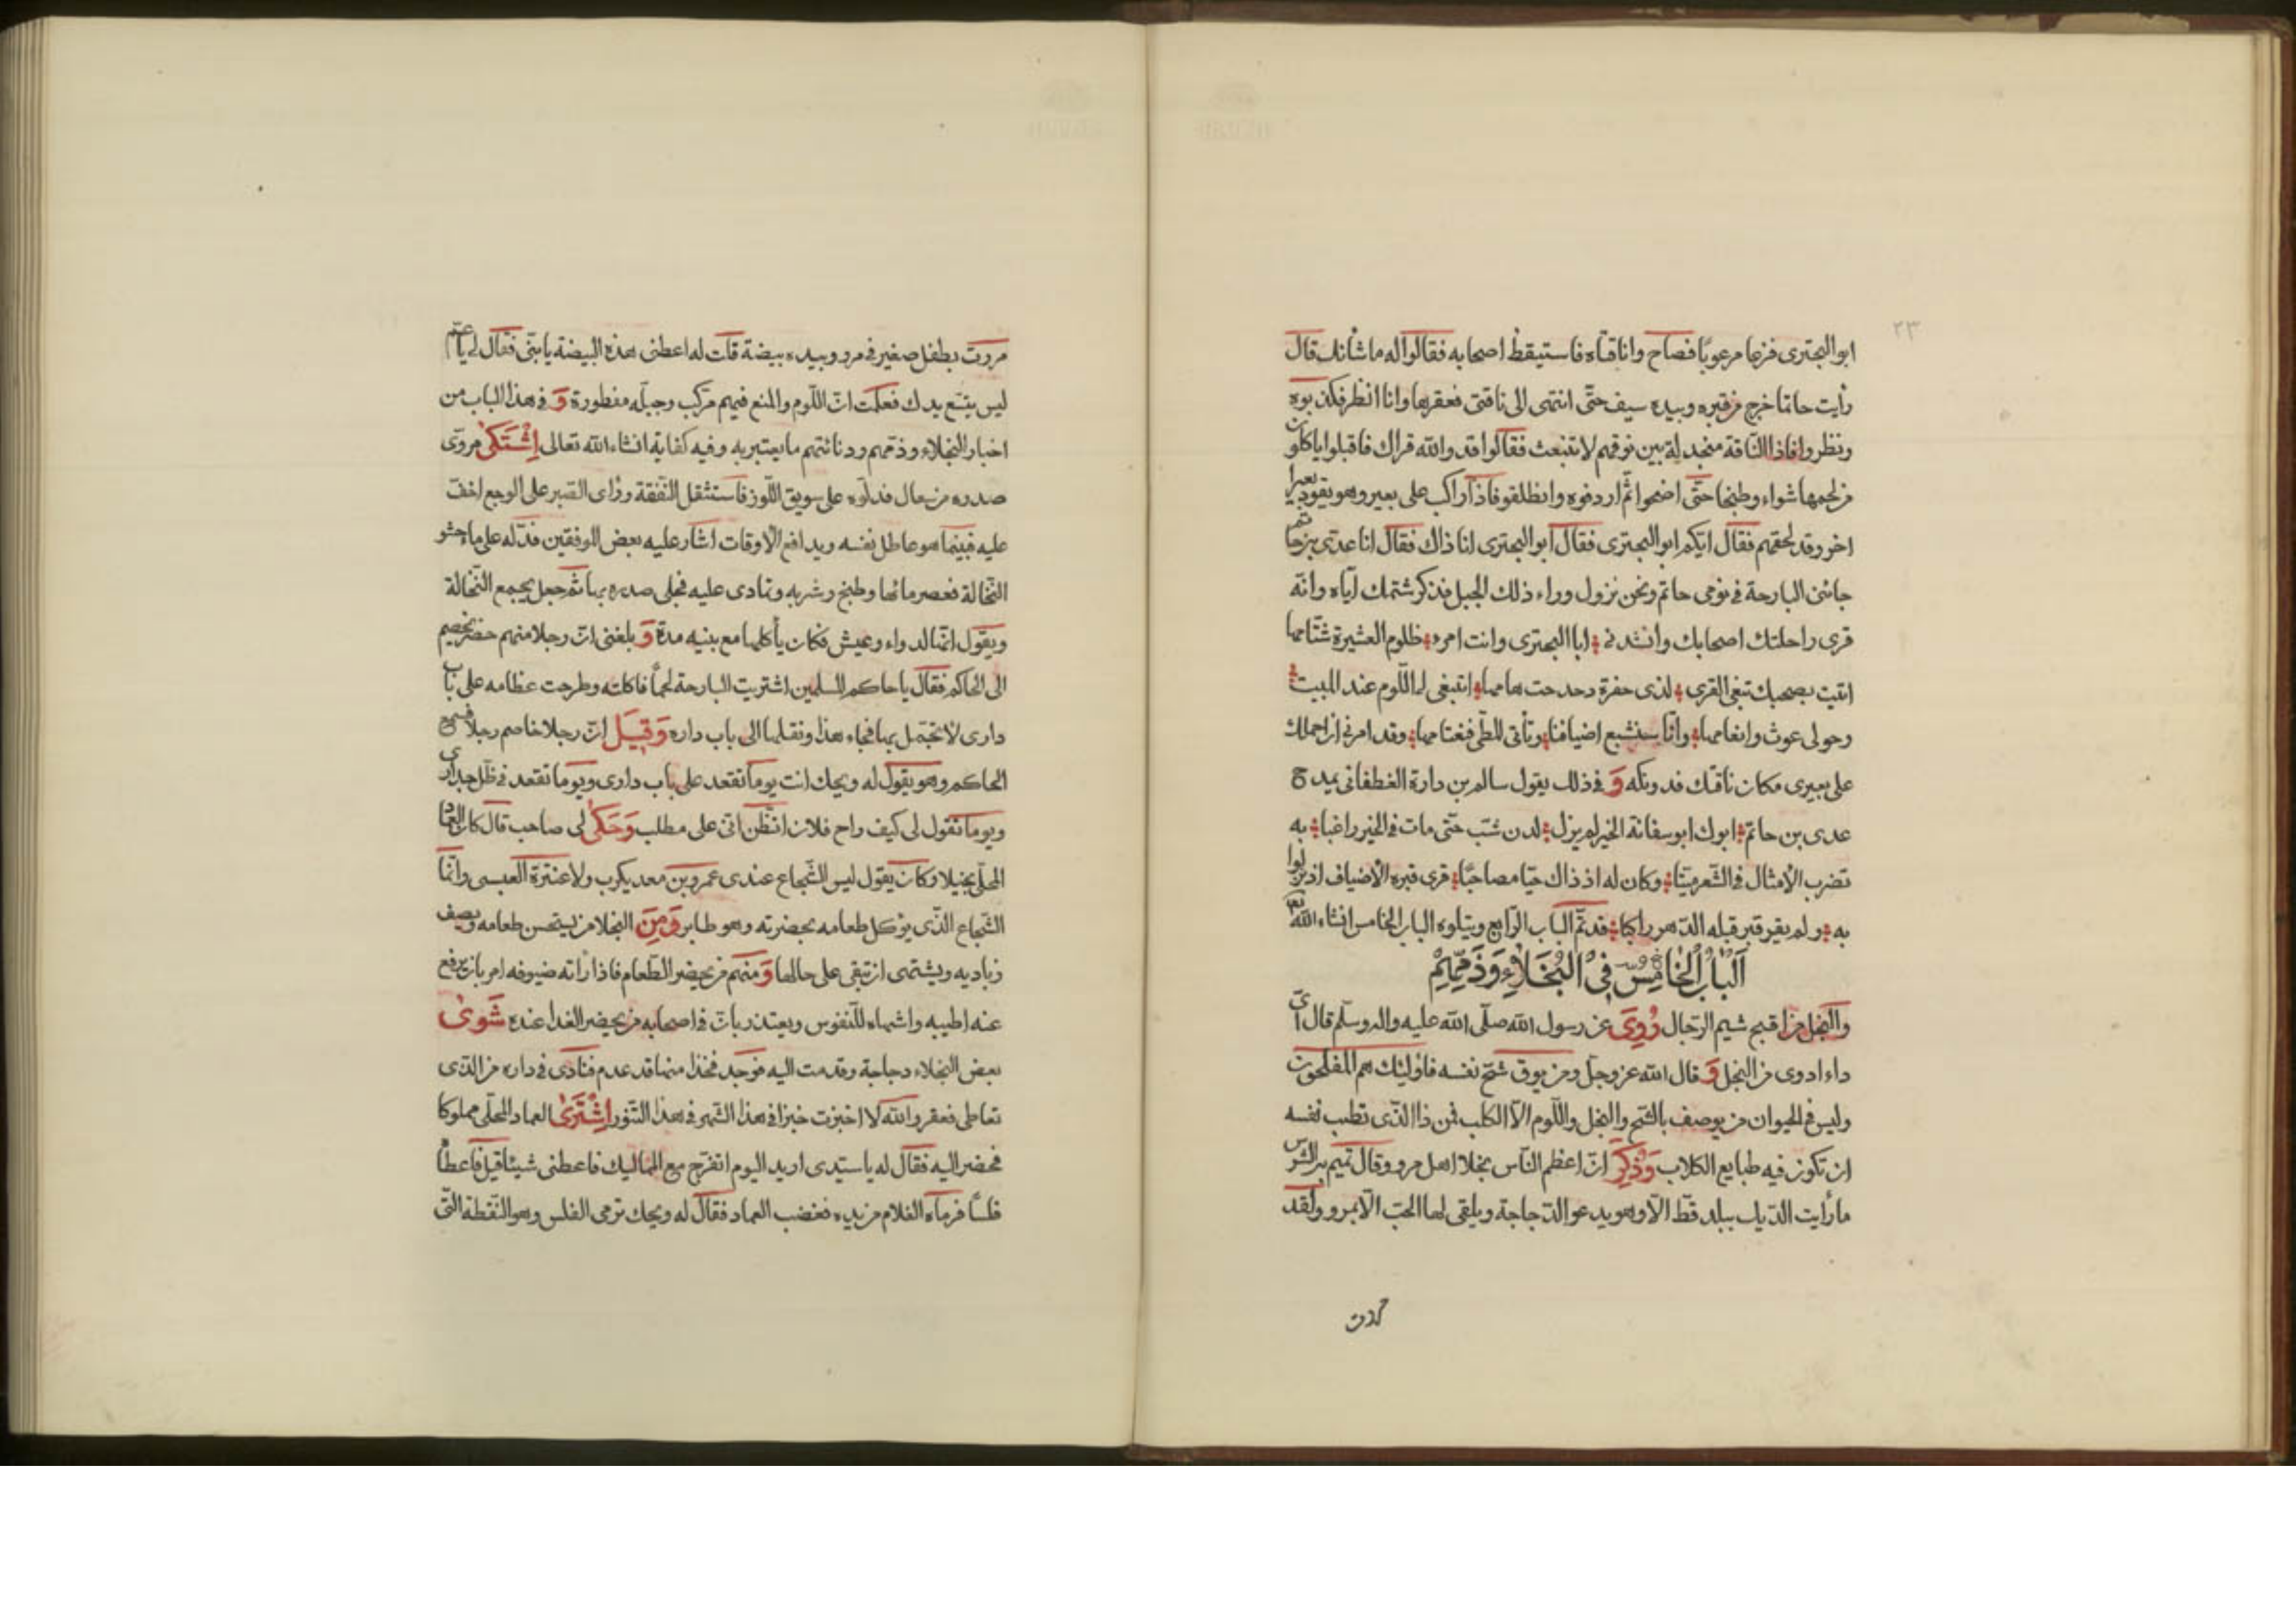 ٢٣
ابو البحترى فزعا مرعوبًا فصاح وانا قتاه فاستيقظ اصحابه فقالوا له ما شأنك قال
رأيت حاتما خرج من قبره وبيده سيف حتّى انتهى الى ناقتى فعقرها وانا انظر فكذبوه
ونظروا فاذا النّاقة منجدلة بين نوقهم لا تنبعث فقالوا قد والله قراك فاقبلوا ياكلون
من لحمها شواء وطبخا حتّى اضحوا ثمّ اردفوه وانطلقو فاذا راكب على بعير وهو يقود بعيرا
اخر وقد لحقهم فقال ايّكم ابو البحترى فقال ابو البحترى انا ذاك فقال انا عدّى بن حاتم
جائنى البارحة فى نومى حاتم ونحن نزول وراء ذلك الجبل فذكر شتمك ايّاه وانّه
قرى راحلتك اصحابك وانشد نى ابا البحترى وانت امرء ظلوم العشيرة شتّامها
اتيت بصحبك تبغى القرى لذى حفرة دحدحت هامها اتبغى لى اللّوم عند المبيت
وحولى عوث وانعامها وانّا سنشبع اضيافنا وتأتى المطّى فنعتامها وقد امرنى ان احملك
على بعيرى مكان ناقتك فدونكه وَ فى ذلك يقول سالم بن دارة الغطفانى يمدح
عدى بن حاتم ابوك ابو سفانة الخير لم يزل لدن شبّ حتّى مات فى الخير راغبا به
تضرب الأمثال فى الشّعر ميّتا وكان له اذ ذاك حيّا مصاحبًا قرى قبره الأضياف اذ نزلوا
به ولم يقر قبر قبله الدّهر راكبا قد تمّ الباب الرّابع ويتلوه الباب الخامس انشاء الله تع
اَلْبٰابُ الْخٰامِسُ فِىْ الْبُخَلٰاءِ وَذَمِّهِمْ
والبخل من اقبح شيم الرّجال رُوِىَ عن رسول الله صلّى الله عليه واله وسلّم قال اىّ
داء ادوى من البخل وَ قال الله عز وجلّ ومن يوق شحّ نفسه فاولئك هم المفلحون
وليس فى الحيوان من يوصف بالشّح والبخل واللّوم الاّ الكلب فمن ذا الّذى تطب نفسه
ان تكون فيه طبايع الكلاب وَذُكِرَ انّ اعظم النّاس بخلا اهل مرو وقال تميم بن الشرس
ما رأيت الدّيك ببلد قطّ الاّ وهو يدعو الدّجاجة ويلقى لها الحبّ الاّ بمرو ولقد
مررت بطفل صغير فى مرو وبيده بيضة قلت له اعطنى هذه البيضة يا بنّى فقال لى يا عمّ
ليس يتّسع يدك فعلمت انّ اللّوم والمنع فيهم مركب وجبلّه مفطورة وَ فى هذا الباب من
اخبار البخلاء وذمّهم ودنائتهم ما يعتبر به وفيه كفاية انشاء الله تعالى اِشْتَكىٰ مروّى
صدره من سعال فدلّوه على سويق اللّوز فاستثقل النّفقة ورأى الصّبر على الوجع اخفّ
عليه فبينما هو عاطل نفسه ويدافع الأوقات اشار عليه بعض الموفقين فدّله على ماء حشو
النّخالة فعصر مائها وطبخ وشربه وتمادى عليه فجلى صدره بها ثمّ جعل يجمع النّخالة
ويقول انّها لدواء وعيش فكان يأكلها مع بنيه مدّة وَ بلغنى انّ رجلا منهم حضر بخصيم
الى الحاكم فقال يا حاكم المسلمين اشتريت البارحة لحمًا فاكلته وطرحت عظامه على باب
دارى لاتجمّل بها فجاء هذا ونقلها الى باب داره وَقيلَ انّ رجلا خاصم رجلا فسمع
الحاكم وهو يقول له ويحك انت يوما تقعد على باب دارى ويوما تقعد فى ظلّ جدارى
ويوما تقول لى كيف راح فلان اتظّن انّى على مطلب وَحَكىٰ لى صاحب قال كان العماد
المحلّى بخيلا وكان يقول ليس الشّجاع عندى عمرو بن معد يكرب ولا عنترة العبسى وانّما
الشّجاع الّذى يؤكل طعامه بحضرته وهو صابر وَمِنَ البخلا من يستحسن طعامه ويصف
زباديه ويشتهى ان تبقى على حالها وَ منهم من يحضر الطّعام فاذا رأته ضيوفه امر بان يرفع
عنه اطيبه واشهاه للنّفوس ويعتذر بانّ فى اصحابه من يحضر الغدا عنده شَوىٰ
بعض البخلاء دجاجة وقدمت اليه فوجد فخذا منها قد عدم فنادى فى داره من الّذى
تعاطى فعقر والله لا اخبزت خبزا فى هذا الشّهر فى هذا التّنور اِشْتَرىٰ العماد المحلّى مملوكا
فحضر اليه فقال له يا سيّدى اريد اليوم اتفرّج مع المماليك فاعطنى شيئا قيل فاعطاه
فلسًا فرماه الغلام من يده فغضب العماد فقال له ويحك ترمى الفلس وهو النّقطة الّتى